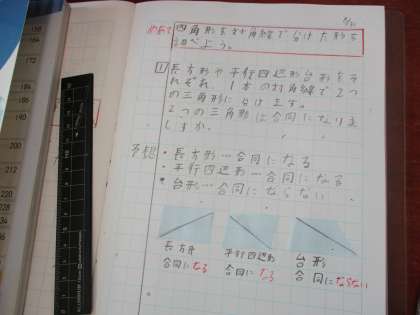 5/31
めあて
四角形を対角線で分けた形を
調べよう。
1 長方形や平行四辺形、台形をそ
れぞれ、1本の対角線で2つ
の三角形に分けます。
2つの三角形は合同になりま
すか。
予想
・長方形…合同になる
・平行四辺形…合同になる
・台形…合同にならない
長方形 平行四辺形 台形
合同になる 合同になる 合同にならない
184
186
190
200
212
220
228